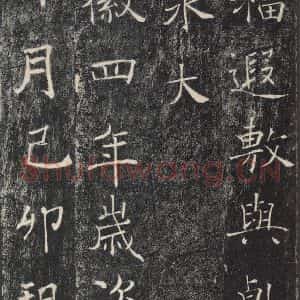 福遐敷與乾
永大
徽四年歲次
月己卯朔
Shufawang.CN